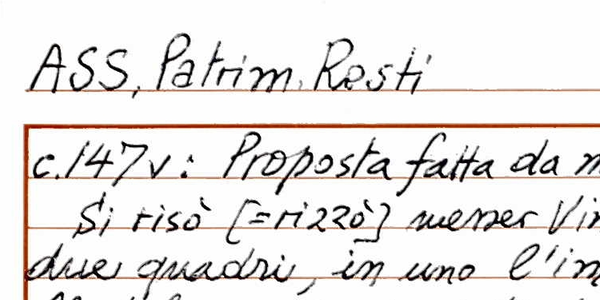 ASS, Patrim. Resti
c.147v: Proposta fatta da
Si risò [=rizzò] messer
due quadri, in uno l'